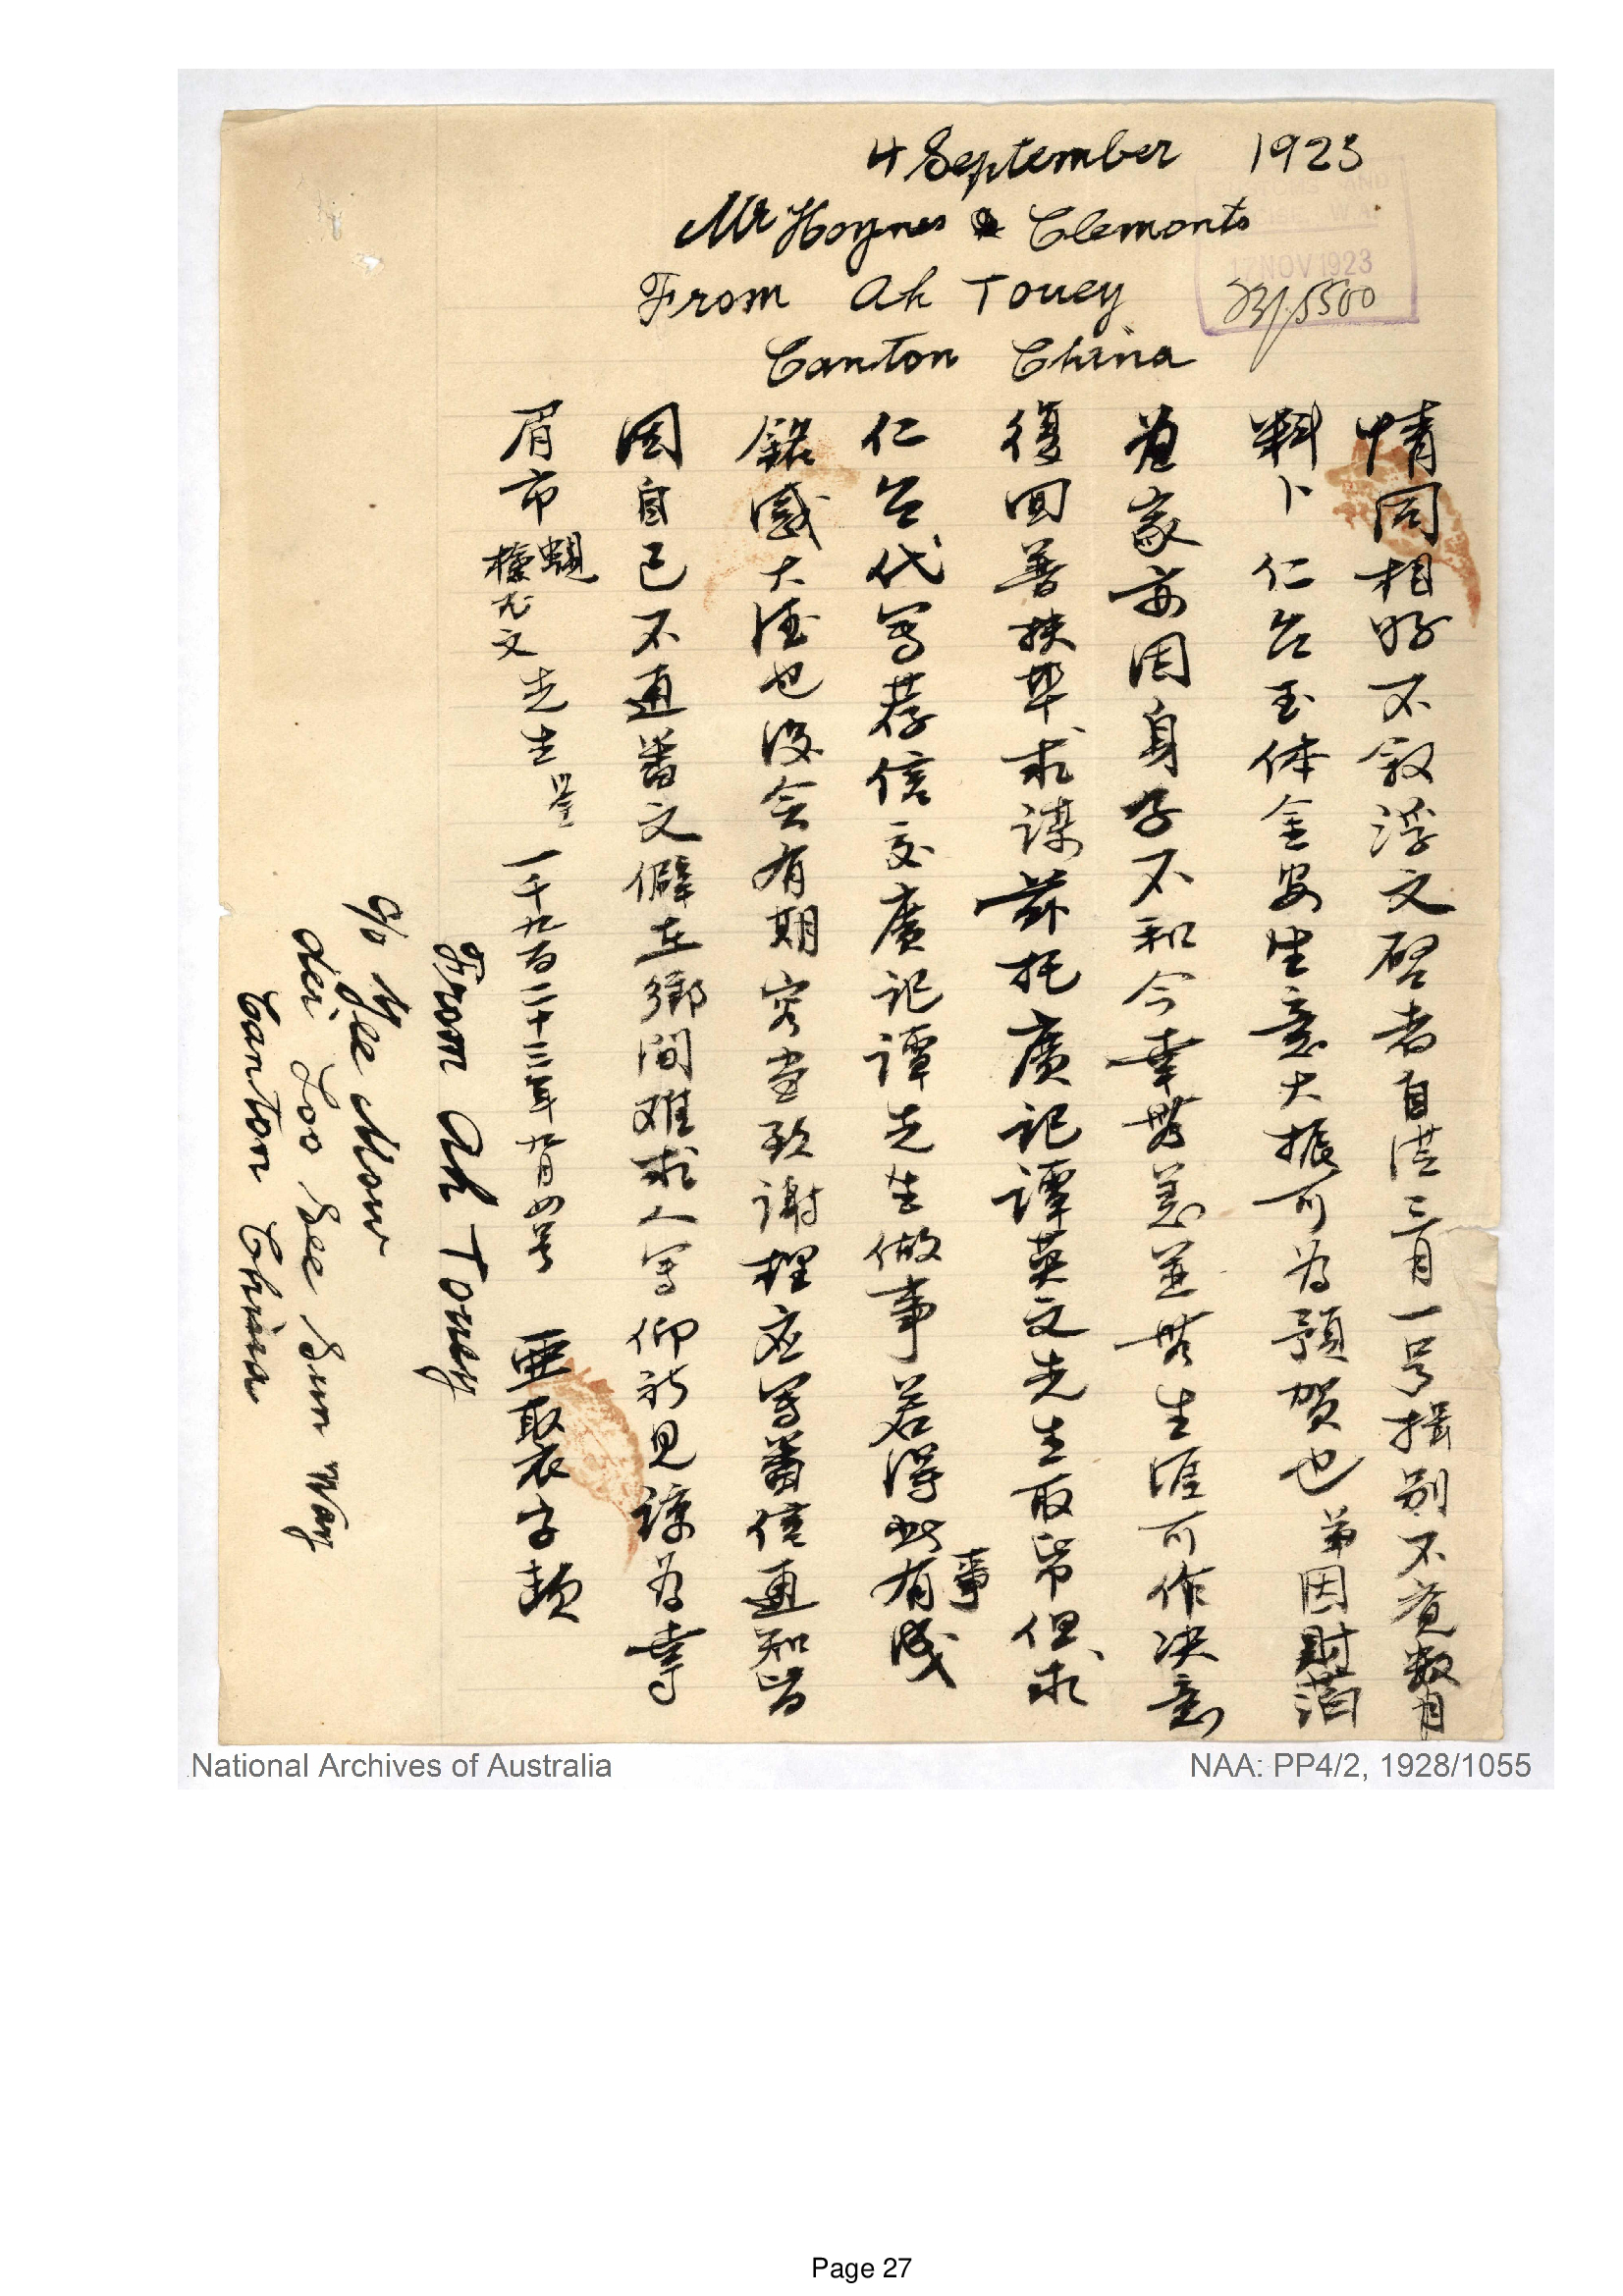 4 September 1923
Mr Hoynes & Clemonts
From Ah Touey
Canton China
CUSTOMS AND
W.A.
17 NOV 1923
23/5500
情同相好不敘浮文啓者自港三月一号揖别不覚数月
料卜仁台玉体金安生意大振可為預賀也弟因財汨
為家亦因身子不和今幸無恙並無生涯可作决意
復回普扶畢求謀茲托廣記譚英文先生取帋但求
仁台代写荐信交廣記譚先生做事若得此事有成
銘感大德也後会有期容当致谢理应写番信通知皆
因自己不通番文僻在鄉间难求人写仰祈見諒為幸
眉市 文先生呈 一千九百二十三年九月四号 亜聚衣字頓
From Ah Toney
c/o Yee Mow
Lei Loo See Sun Way
Canton China
National Archives of Australia
NAA: PP4/2, 1928/1055
Page 27